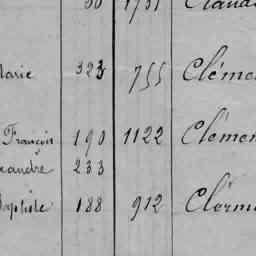 50 1731 Claud
Marie 323 755 Cléme
François 190 1122 Clémen
xandre 233
Baptiste 188 912 Clérm